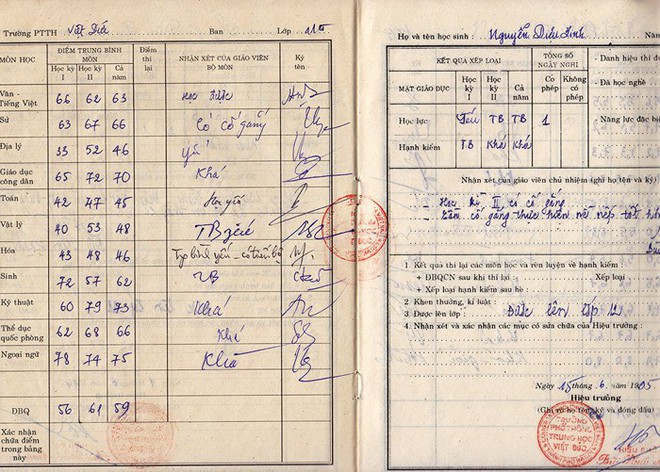 Trường PTTH Việt Đức Ban Lớp 11
MÔN HỌC
ĐIỂM TRUNG BÌNH MÔN
Học kỳ I
Học kỳ II
Cả năm
Điểm thi lại
NHẬN XÉT CỦA GIÁO VIÊN BỘ MÔN
Ký tên
Văn - Tiếng Việt 66 62 63 Học được
Sử 63 67 66 Có cố gắng
Địa lý 33 52 46 Yếu
Giáo dục công dân 65 72 70 Khá
Toán 42 47 45 Học yếu
Vật lý 40 53 48 TB yếu
Hóa 43 48 46
Sinh 72 57 62 TB
Kỹ thuật 60 79 73 Khá
Thể dục quốc phòng 62 68 66 Khá
Ngoại ngữ 78 74 75 Khá
ĐBQ 56 61 59
Xác nhận chữa điểm trong bảng này
Họ và tên học sinh: Nguyễn Diệu Linh
KẾT QUẢ XẾP LOẠI
TỔNG SỐ NGÀY NGHỈ
MẶT GIÁO DỤC
Học kỳ I
Học kỳ II
Cả năm
Có phép
Không có phép
Học lực Yếu TB TB 1
Hạnh kiểm TB Khá Khá
- Danh hiệu thi đ
- Đã học nghề
- Năng lực đặc biệ
Nhận xét của giáo viên chủ nhiệm (ghi họ tên và ký)
- Học kỳ II có cố gắng
- Cần cố gắng thực hiện nề nếp tốt
1. Kết quả thi lại các môn học và rèn luyện về hạnh kiểm:
+ ĐBQCN sau khi thi lại: Xếp loại
+ Xếp loại hạnh kiểm sau hè:
2. Khen thưởng, kỉ luật:
3. Được lên lớp: Được lên lớp 12
4. Nhận xét và xác nhận các mục có sửa chữa của Hiệu trưởng:
Ngày 15 tháng 6 năm 1995
Hiệu trưởng
(Ghi rõ họ tên, ký và đóng dấu)
TRƯỜNG
PHỔ THÔNG
TRUNG HỌC
VIỆT ĐỨC